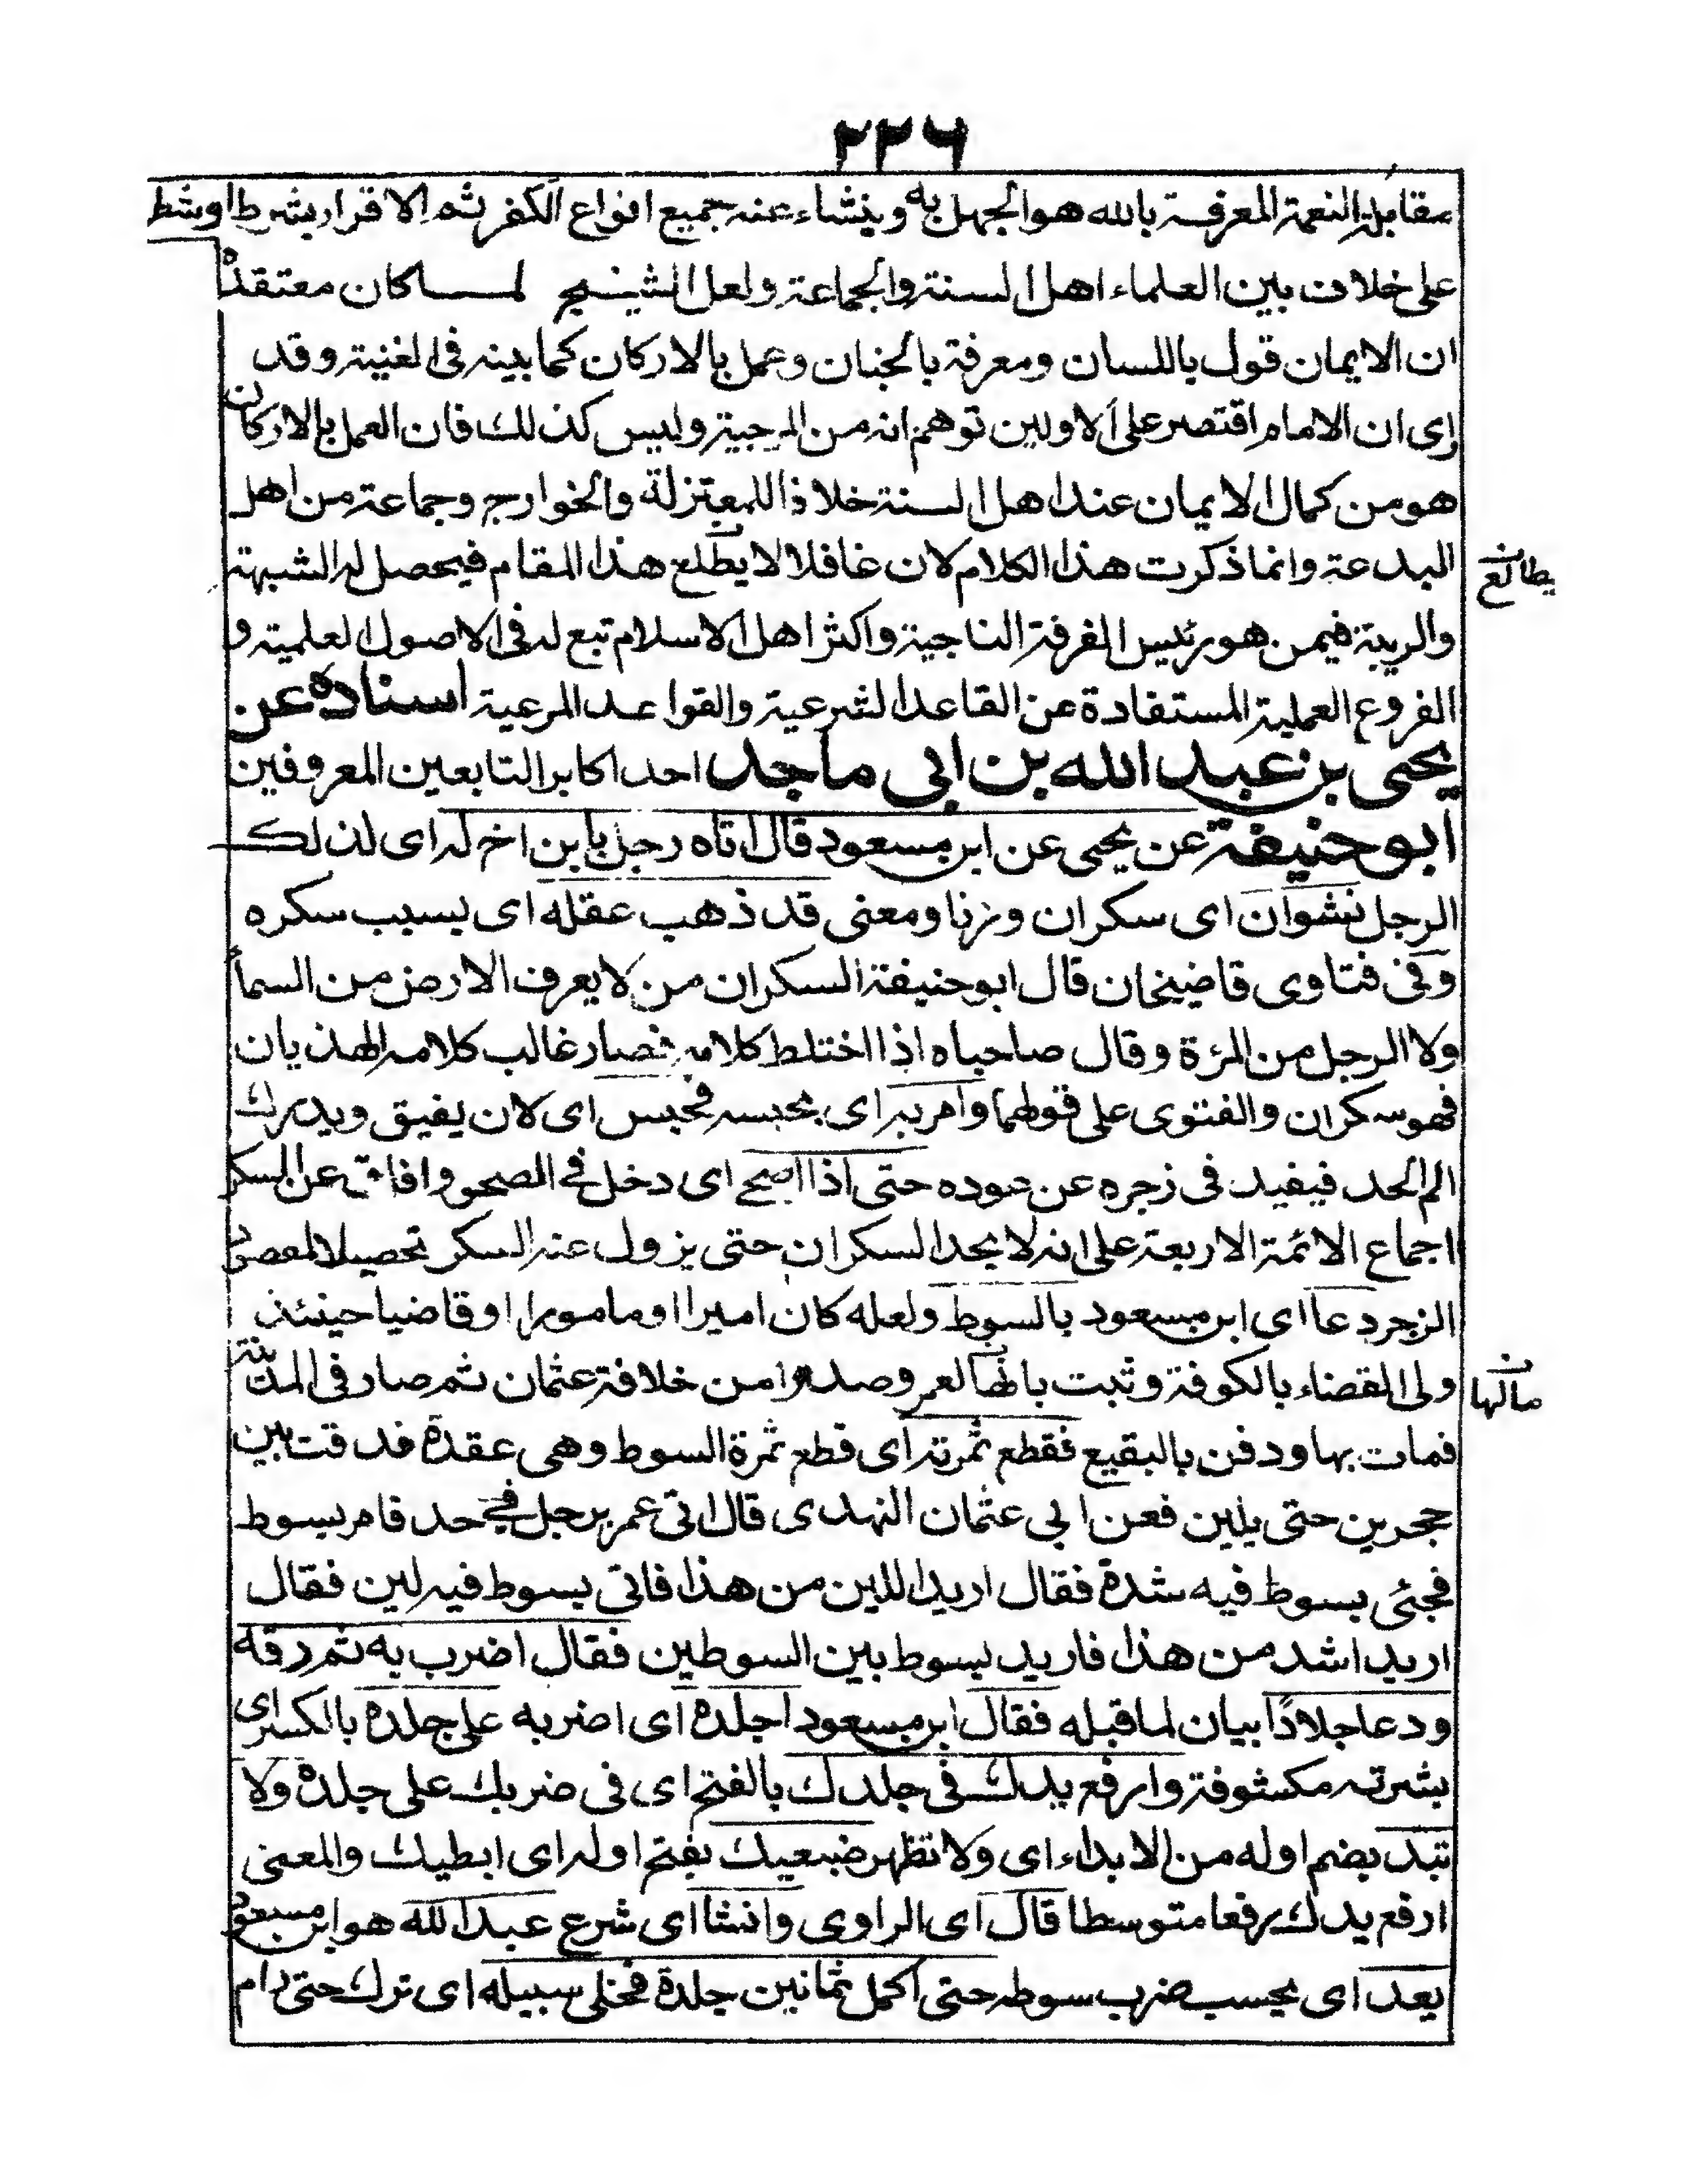 ٢٢٦
مقابلة النعمة المعرفة بالله هو الجهل به وينشاء عنه جميع انواع الكفر ثم الاقرار بشرط او شط
على خلاف بين العلماء اهل السنة والجماعة ولعل الشيخ لما كان معتقده
ان الايمان قول باللسان ومعرفة بالجنان وعمل بالاركان كما بينه فى الغنية وقد
راى ان الامام اقتصر على الاولين توهم انه من المرجية وليس كذلك فان العمل بالاركان
هو من كمال الايمان عند اهل السنة خلافا للمعتزلة والخوارج وجماعة من اهل
البدعة وانما ذكرت هذا الكلام لان غافلا لا يطلع هذا المقام فيحصل له الشبهة
يطالع ن
والريبة فيمن هو رئيس الفرقة الناجية واكثر اهل الاسلام تبع له فى الاصول العلمية و
الفروع العملية المستفادة عن القاعد الشرعية والقواعد المرعية اسناده عن
يحيى بن عبد الله بن ابى ماجد احد اكابر التابعين المعروفين
ابو حنيفة عن يحيى عن ابن مسعود قال اتاه رجل بابن اخ له اى لذلك
الرجل نشوان اى سكران وزنا ومعنى قد ذهب عقله اى بسبب سكره
وفى فتاوى قاضيخان قال ابو حنيفة السكران من لا يعرف الارض من السماء
ولا الرجل من المرءة وقال صاحباه اذا اختلط كلامه فصار غالب كلامه الهذيان
فهو سكران والفتوى على قولهما وامر به اى بحبسه فحبس اى لان يفيق ويدرك
الم الحد فيفيد فى زجره عن عوده حتى اذا صح اى دخل فى الصحو وافاق عن السكر
اجماع الائمة الاربعة على انه لا يحد السكران حتى يزول عنه السكر تحصيلا لمقصود
الزجر دعا اى ابن مسعود بالسوط ولعله كان اميرا او مامورا او قاضيا حينئذ
ولى القضاء بالكوفة وثبت بانها لعمر وصدرا من خلافة عثمان ثم صار فى المدينة
مالها ن
فمات بها ودفن بالبقيع فقطع ثمرته اى قطع ثمرة السوط وهى عقدة فدقت بين
حجرين حتى يلين فعن ابى عثمان النهدى قال اتى عمر برجل فى حد فامر بسوط
فجئى بسوط فيه شدة فقال اريد الين من هذا فاتى بسوط فيه لين فقال
اريد اشد من هذا فاريد بسوط بين السوطين فقال اضرب به ثم دقه
ودعا جلادًا بيان لما قبله فقال ابن مسعود اجلده اى اضربه على جلده بالكسر اى
بشرته مكشوفة وارفع يدك فى جلدك بالفتح اى فى ضربك على جلده ولا
تبد بضم اوله من الابداء اى ولا تظهر ضبعيك بفتح اوله اى ابطيك والمعنى
ارفع يدك رفعا متوسطا قال اى الراوى وانشا اى شرع عبد الله هو ابن مسعود
يعد اى يحسب ضرب سوطه حتى اكمل ثمانين جلدة فخلى سبيله اى ترك حتى رام